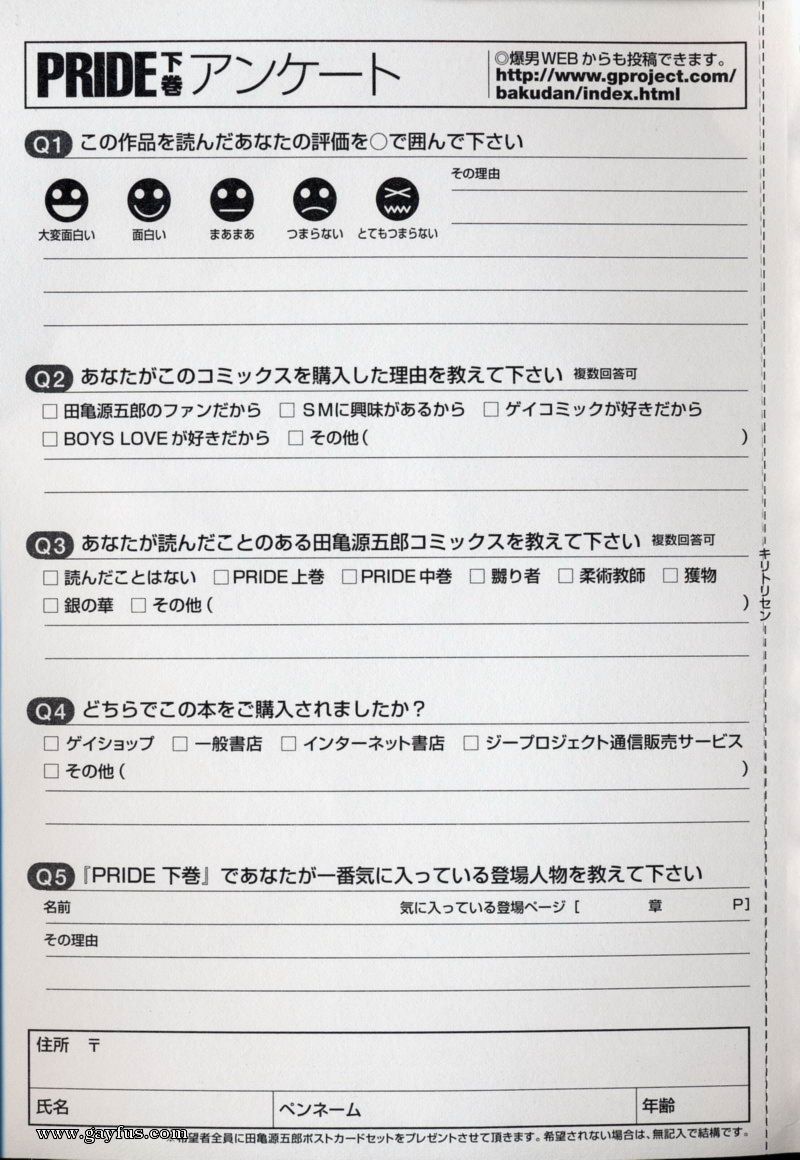 PRIDE 下巻 アンケート
◎爆男WEBからも投稿できます。
http://www.gproject.com/
bakudan/index.html
Q1 この作品を読んだあなたの評価を○で囲んで下さい
その理由
大変面白い 面白い まあまあ つまらない とてもつまらない
Q2 あなたがこのコミックスを購入した理由を教えて下さい 複数回答可
□ 田亀源五郎のファンだから □ SMに興味があるから □ ゲイコミックが好きだから
□ BOYS LOVEが好きだから □ その他( )
Q3 あなたが読んだことのある田亀源五郎コミックスを教えて下さい 複数回答可
□ 読んだことはない □ PRIDE上巻 □ PRIDE中巻 □ 嬲り者 □ 柔術教師 □ 獲物
□ 銀の華 □ その他( )
キリトリセン
Q4 どちらでこの本をご購入されましたか？
□ ゲイショップ □ 一般書店 □ インターネット書店 □ ジープロジェクト通信販売サービス
□ その他( )
Q5 『PRIDE 下巻』であなたが一番気に入っている登場人物を教えて下さい
名前 気に入っている登場ページ [ 章 P]
その理由
住所 〒
氏名 ペンネーム 年齢
※希望者全員に田亀源五郎ポストカードセットをプレゼントさせて頂きます。希望されない場合は、無記入で結構です。
www.gayfus.com